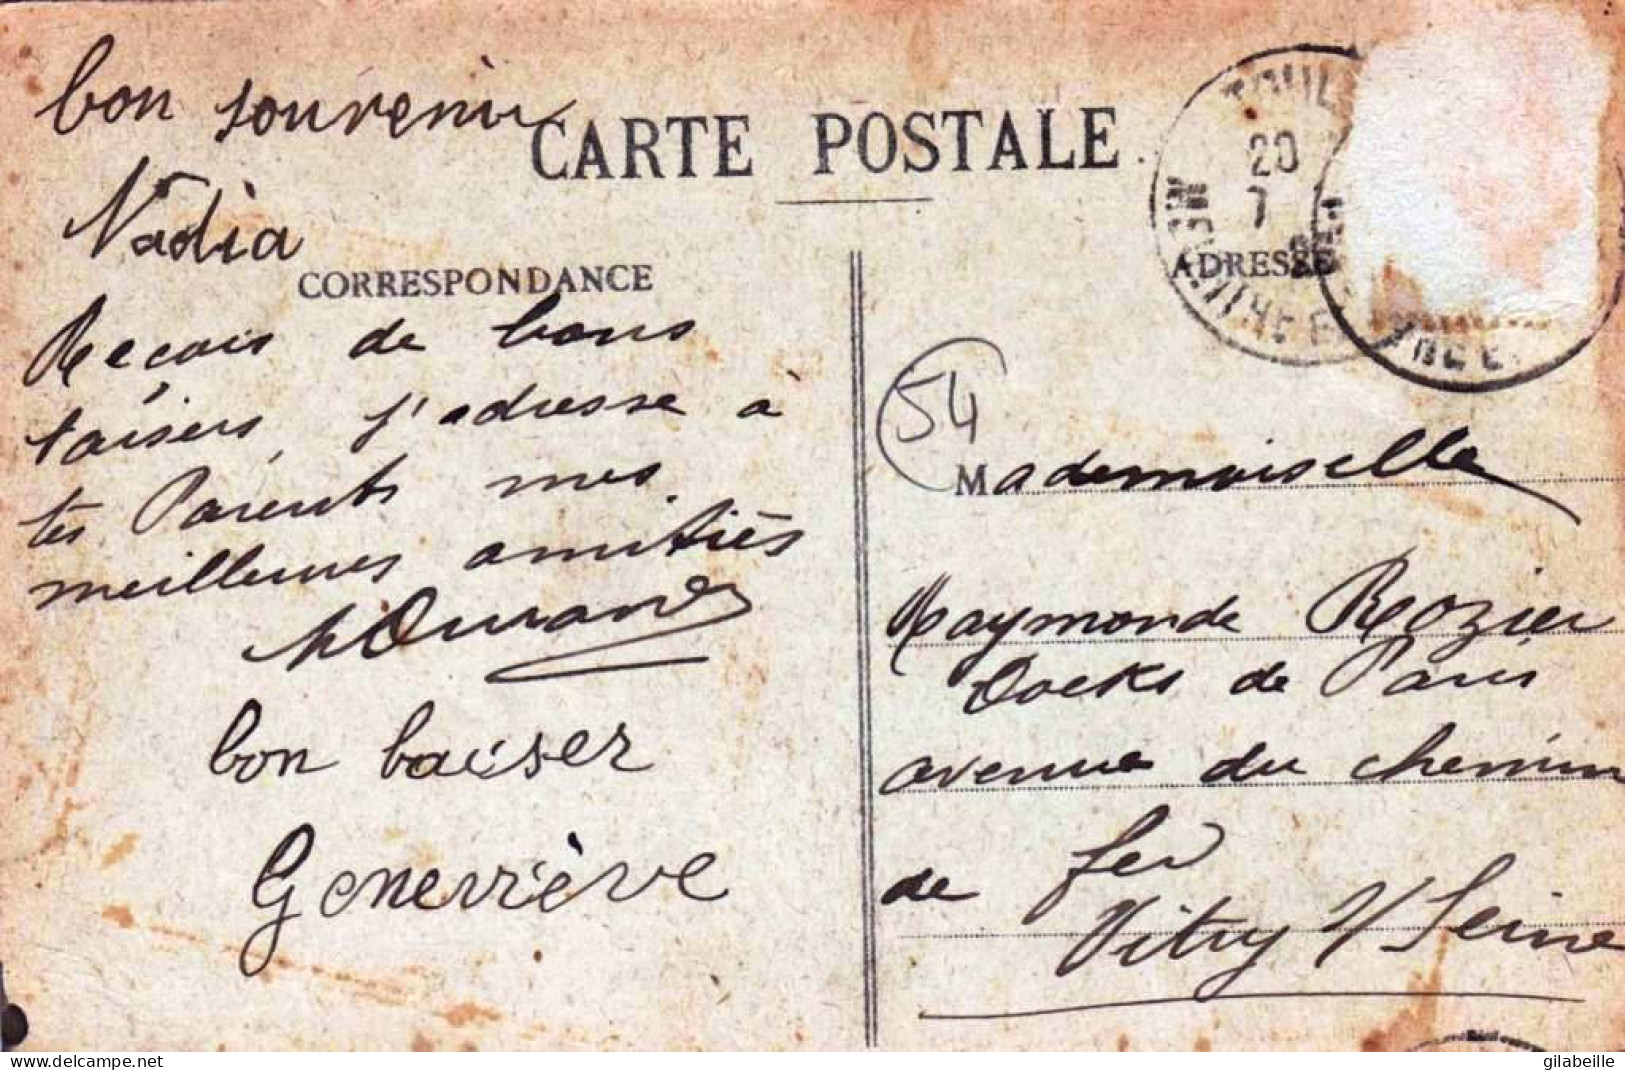 bon souvenir
CARTE POSTALE
Nadia
CORRESPONDANCE
ADRESSE
Reçois de bons
baisers, j'adresse à
tes Parents mes
meilleures amitiés
bon baiser
Geneviève
TOUL
20
7
54
Mademoiselle
Raymonde Rozier
Docks de Paris
avenue du chemin
de fer
Vitry s/ Seine
delcampe.net
gilabeille